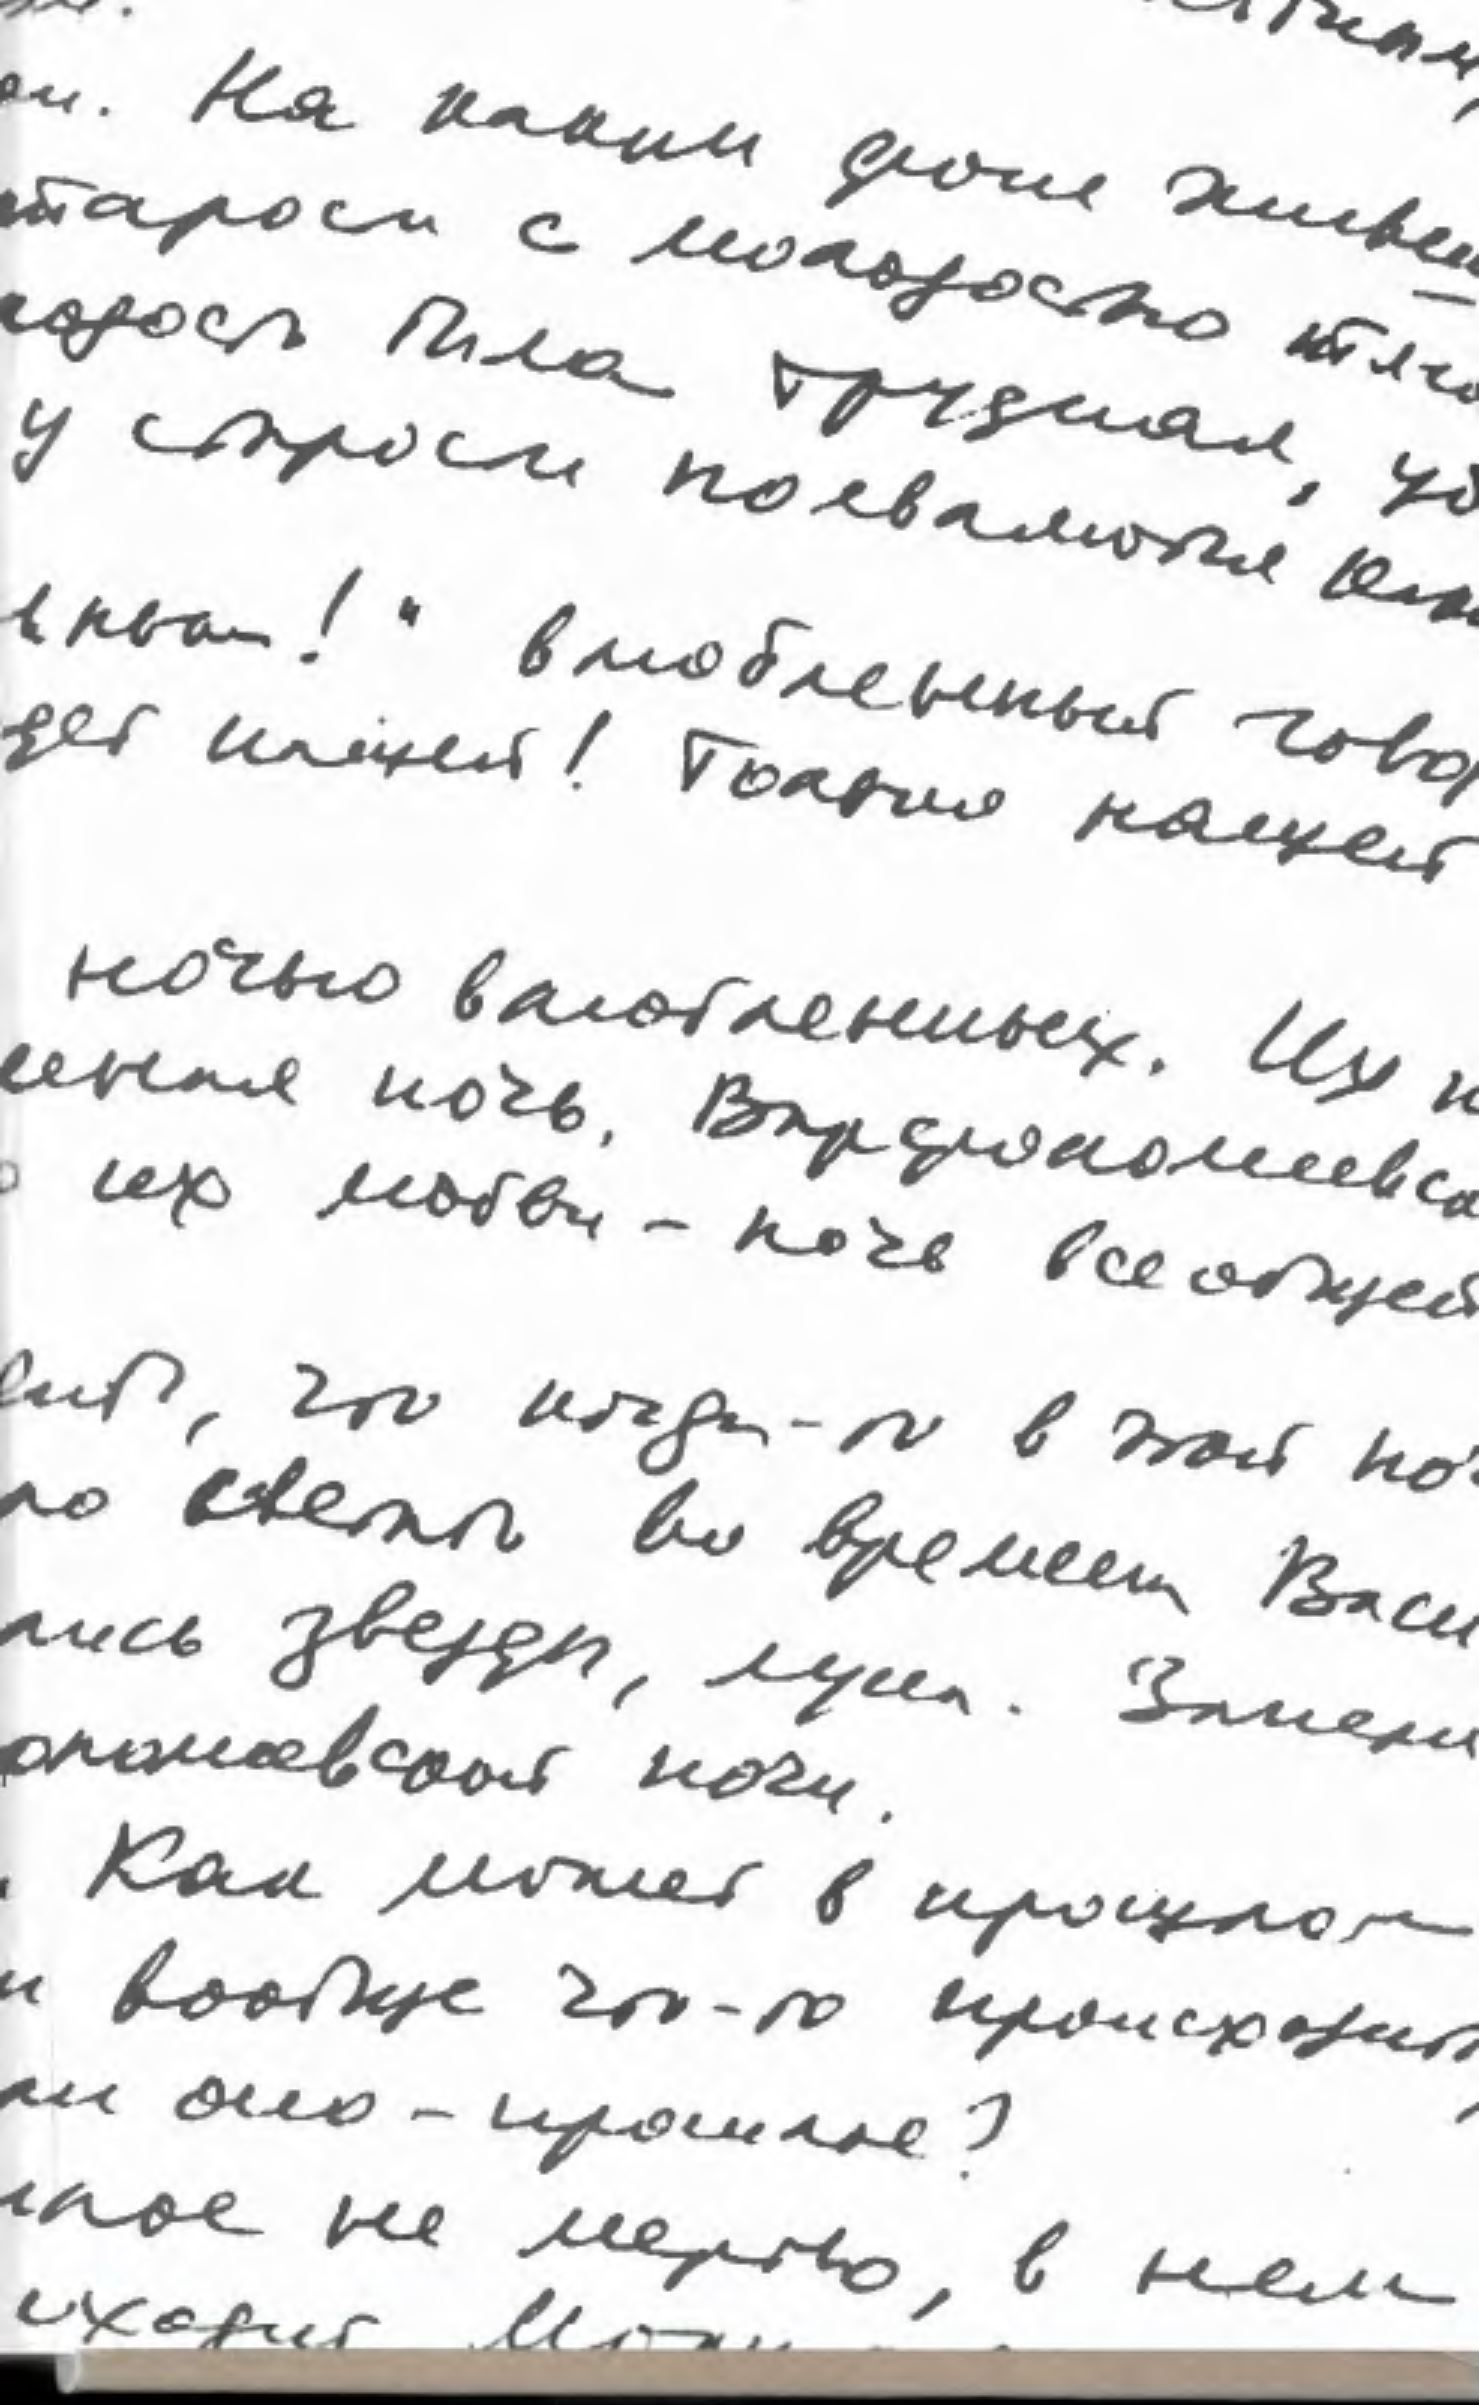 На каким фоне живет
старости с молодостью
молодость была трудная,
У старости появляются
! " влюбленный говор
дет нашей! Только нашей
ночью влюбленных. Их
ночь. Варфоломеевск
их любви - ночь всеобщей
что когда-то в этой ноч
светить во времен Васи
лись звезды, луна. Замени
оломеевской ночи.
Как может в прошлом
и вообще что-то происходить,
ли оно - прошлое?
не мертво, в нем
исходит